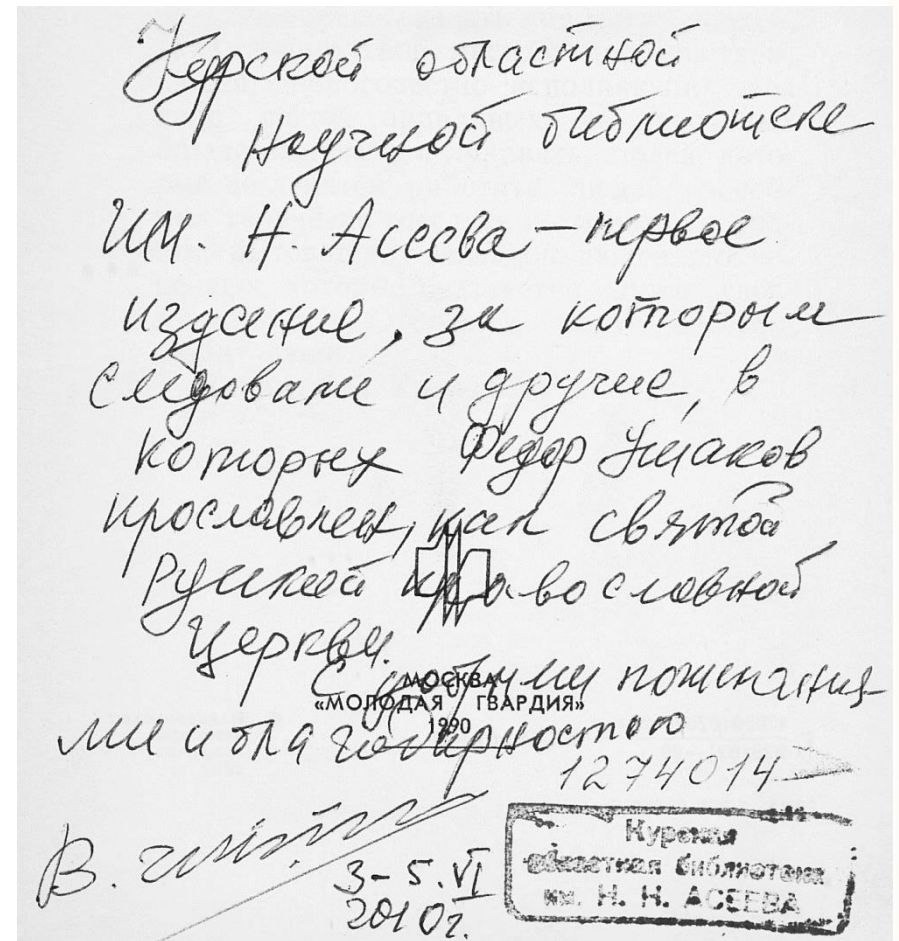 Курской областной
Научной библиотеке
им. Н. Асеева – первое
издание, за которым
следовали и другие, в
которых Федор Ушаков
прославлен, как святой
Русской православной
Церкви.
С добрыми пожелания-
МОСКВА
«МОЛОДАЯ ГВАРДИЯ»
1990
ми и благодарностью
1274014
В.
3-5.VI
2010г.
Курская
областная библиотека
им. Н. Н. АСЕЕВА